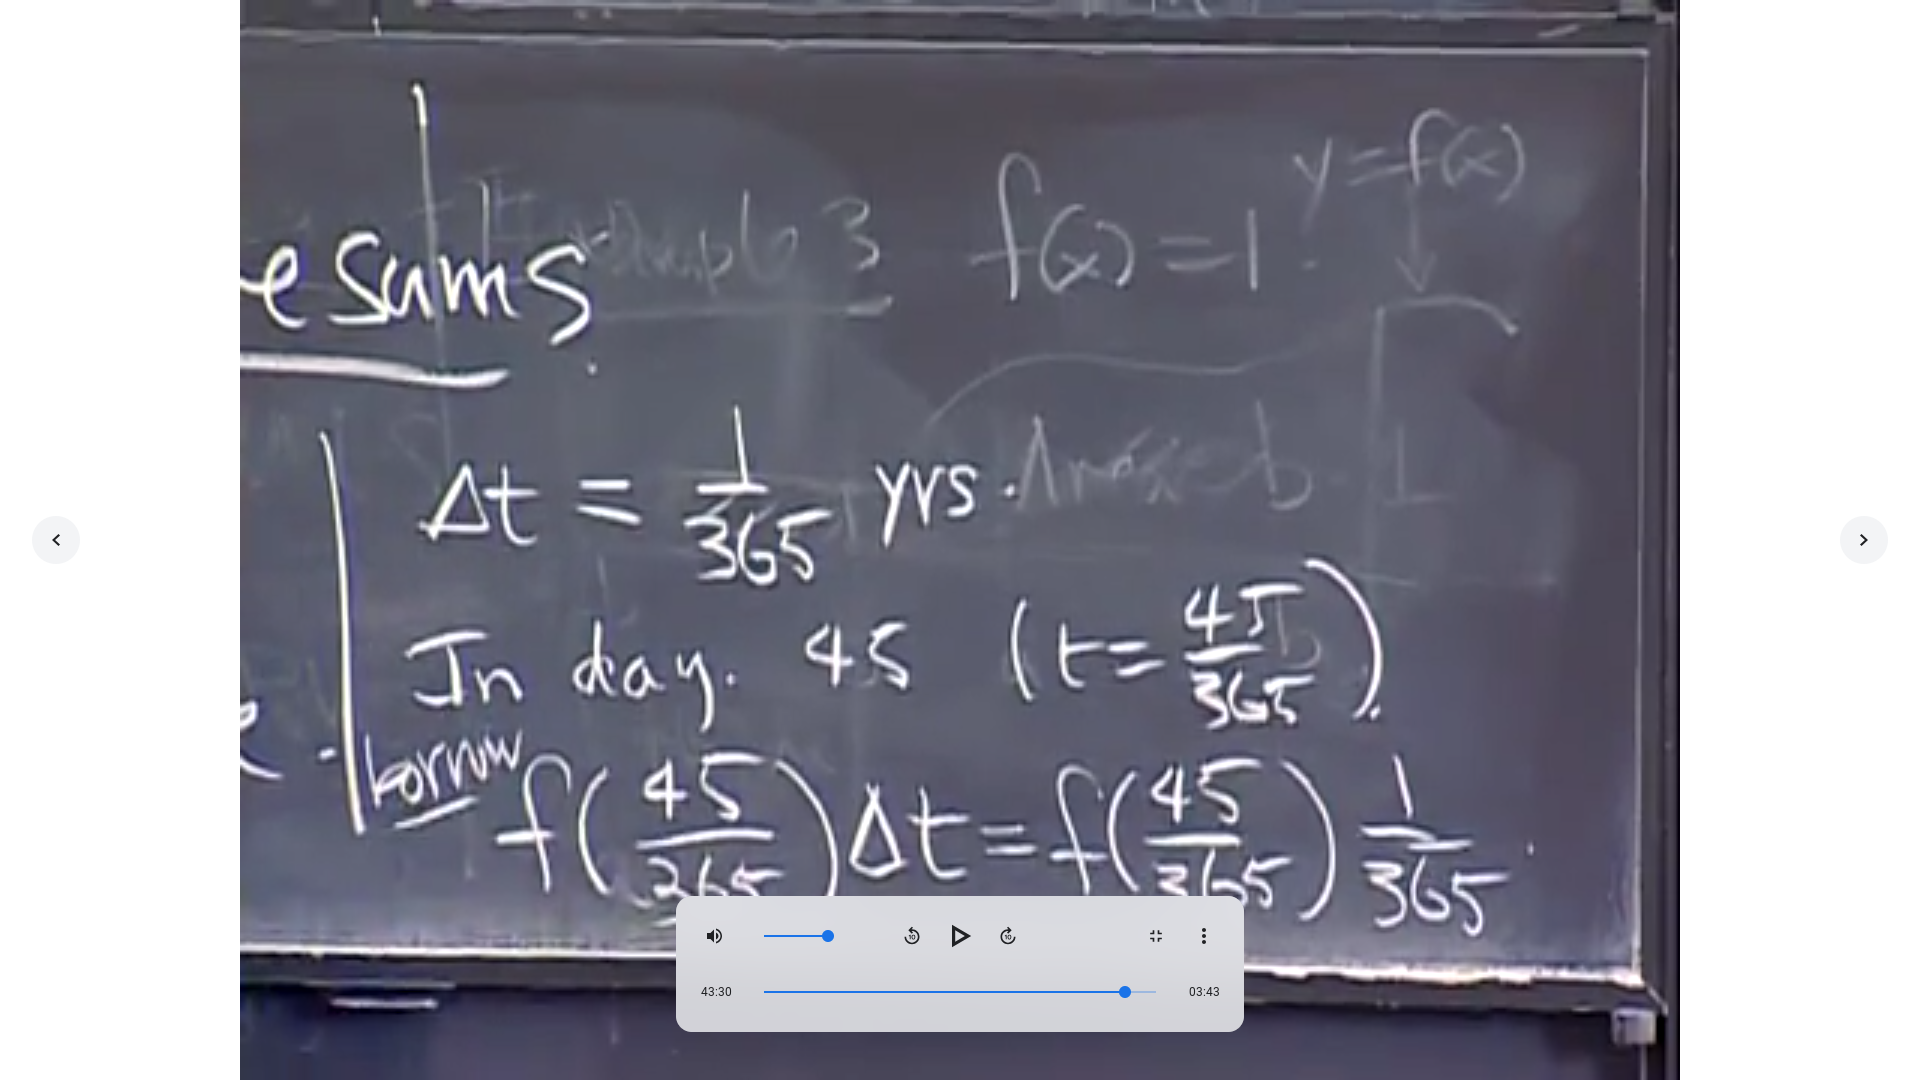 y = f(x)
Example 3 f(x) = 1
e sums
Δt = 1/365 yrs.
In day. 45 (t = 45/365).
borrow f(45/365) Δt = f(45/365) 1/365.
43:30 03:43